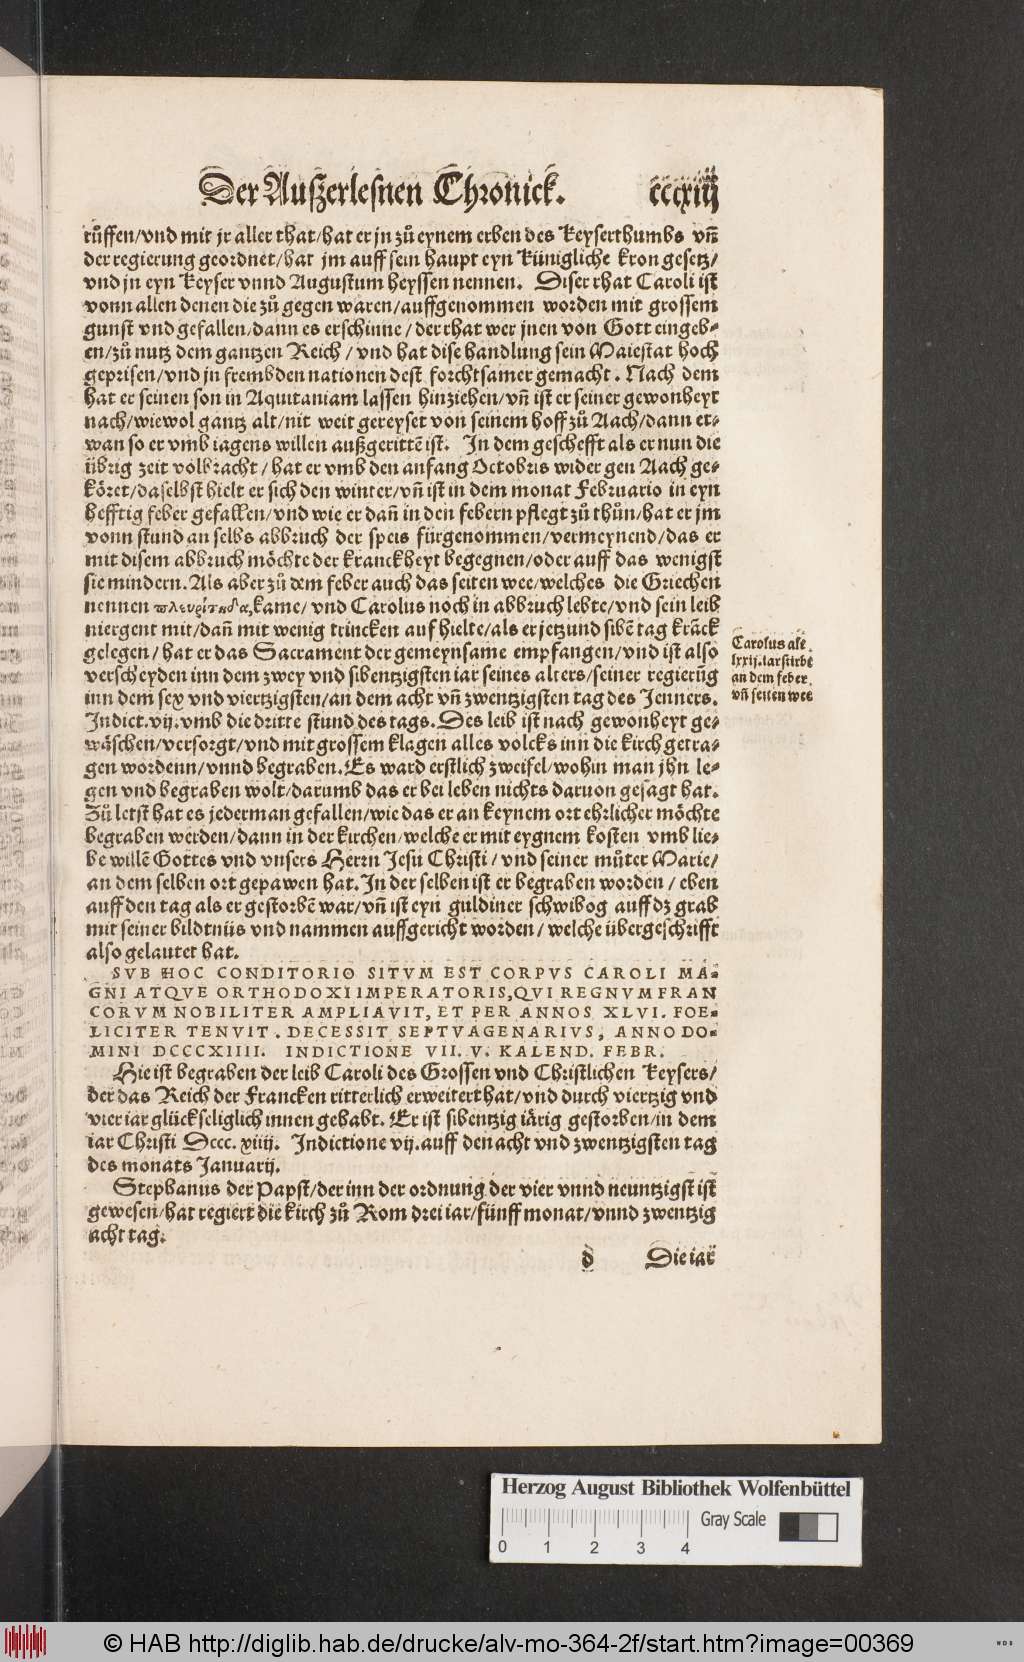 Der Außerlesnen Chronick. cccxiij
rüffen/vnd mit jr aller that/hat er jn zů eynem erben des Keyserthumbs vñ
der regierung geordnet/hat jm auff sein haupt eyn Künigliche kron gesetz/
vnd jn eyn Keyser vnnd Augustum heyssen nennen. Diser that Caroli ist
vonn allen denen die zů gegen waren/auffgenommen worden mit grossem
gunst vnd gefallen/dann es erschinne/der that wer jnen von Gott eingeb-
en/zů nutz dem gantzen Reich/vnd hat dise handlung sein Maiestat hoch
geprisen/vnd jn frembden nationen dest forchtsamer gemacht. Nach dem
hat er seinen son in Aquitaniam lassen hinziehen/vñ ist er seiner gewonheyt
nach/wiewol gantz alt/nit weit gereyset von seinem hoff zů Aach/dann et-
wan so er vmb iagens willen außgerittẽ ist. In dem geschefft als er nun die
übrig zeit volbracht/hat er vmb den anfang Octobris wider gen Aach ge-
köret/daselbst hielt er sich den winter/vñ ist in dem monat Februario in eyn
hefftig feber gefallen/vnd wie er dañ in den febern pflegt zů thůn/hat er jm
vonn stund an selbs abbruch der speis fürgenommen/vermeynend/das er
mit disem abbruch möchte der kranckheyt begegnen/oder auff das wenigst
sie mindern. Als aber zů dem feber auch das seiten wee/welches die Griechen
nennen πλευρίτιδα, kame/vnd Carolus noch in abbruch lebte/vnd sein leib
niergent mit/dañ mit wenig trincken auf hielte/als er jetzund sibẽ tag krãck
gelegen/hat er das Sacrament der gemeynsame empfangen/vnd ist also
verscheyden inn dem zwey vnd sibentzigsten iar seines alters/seiner regierũg
inn dem sex vnd viertzigsten/an dem acht vñ zwentzigsten tag des Jenners.
Indict.vij.vmb die dritte stund des tags. Des leib ist nach gewonheyt ge-
wäschen/versorgt/vnd mit grossem klagen alles volcks inn die kirch getra-
gen wordenn/vnnd begraben. Es ward erstlich zweifel/wohin man jhn le-
gen vnd begraben wolt/darumb das er bei leben nichts daruon gesagt hat.
Zů letst hat es jederman gefallen/wie das er an keynem ort ehrlicher möchte
begraben werden/dann in der kirchen/welche er mit eygnem kosten vmb lie-
be willẽ Gottes vnd vnsers Herrn Jesu Christi/vnd seiner můter Marie/
an dem selben ort gepawen hat. In der selben ist er begraben worden/eben
auff den tag als er gestorbẽ war/vñ ist eyn guldiner schwibog auff dz grab
mit seiner bildtnüs vnd nammen auffgericht worden/welche übergeschrifft
also gelautet hat.
Carolus alt
lxxij. iar stirbt
an dem feber
vñ seiten wee
SVB HOC CONDITORIO SITVM EST CORPVS CAROLI MA-
GNI ATQVE ORTHODOXI IMPERATORIS, QVI REGNVM FRAN
CORVM NOBILITER AMPLIAVIT, ET PER ANNOS XLVI. FOE-
LICITER TENVIT. DECESSIT SEPTVAGENARIVS, ANNO DO-
MINI DCCCXIIII. INDICTIONE VII. V. KALEND. FEBR.
Hie ist begraben der leib Caroli des Grossen vnd Christlichen Keysers/
der das Reich der Francken ritterlich erweitert hat/vnd durch viertzig vnd
vier iar glückseliglich innen gehabt. Er ist sibentzig järig gestorben/in dem
iar Christi Dccc. xiiij. Indictione vij. auff den acht vnd zwentzigsten tag
des monats Januarij.
Stephanus der Papst/der inn der ordnung der vier vnnd neuntzigst ist
gewesen/hat regiert die kirch zů Rom drei iar/fünff monat/vnnd zwentzig
acht tag.
d Die iar
Herzog August Bibliothek Wolfenbüttel
Gray Scale
0 1 2 3 4
© HAB http://diglib.hab.de/drucke/alv-mo-364-2f/start.htm?image=00369